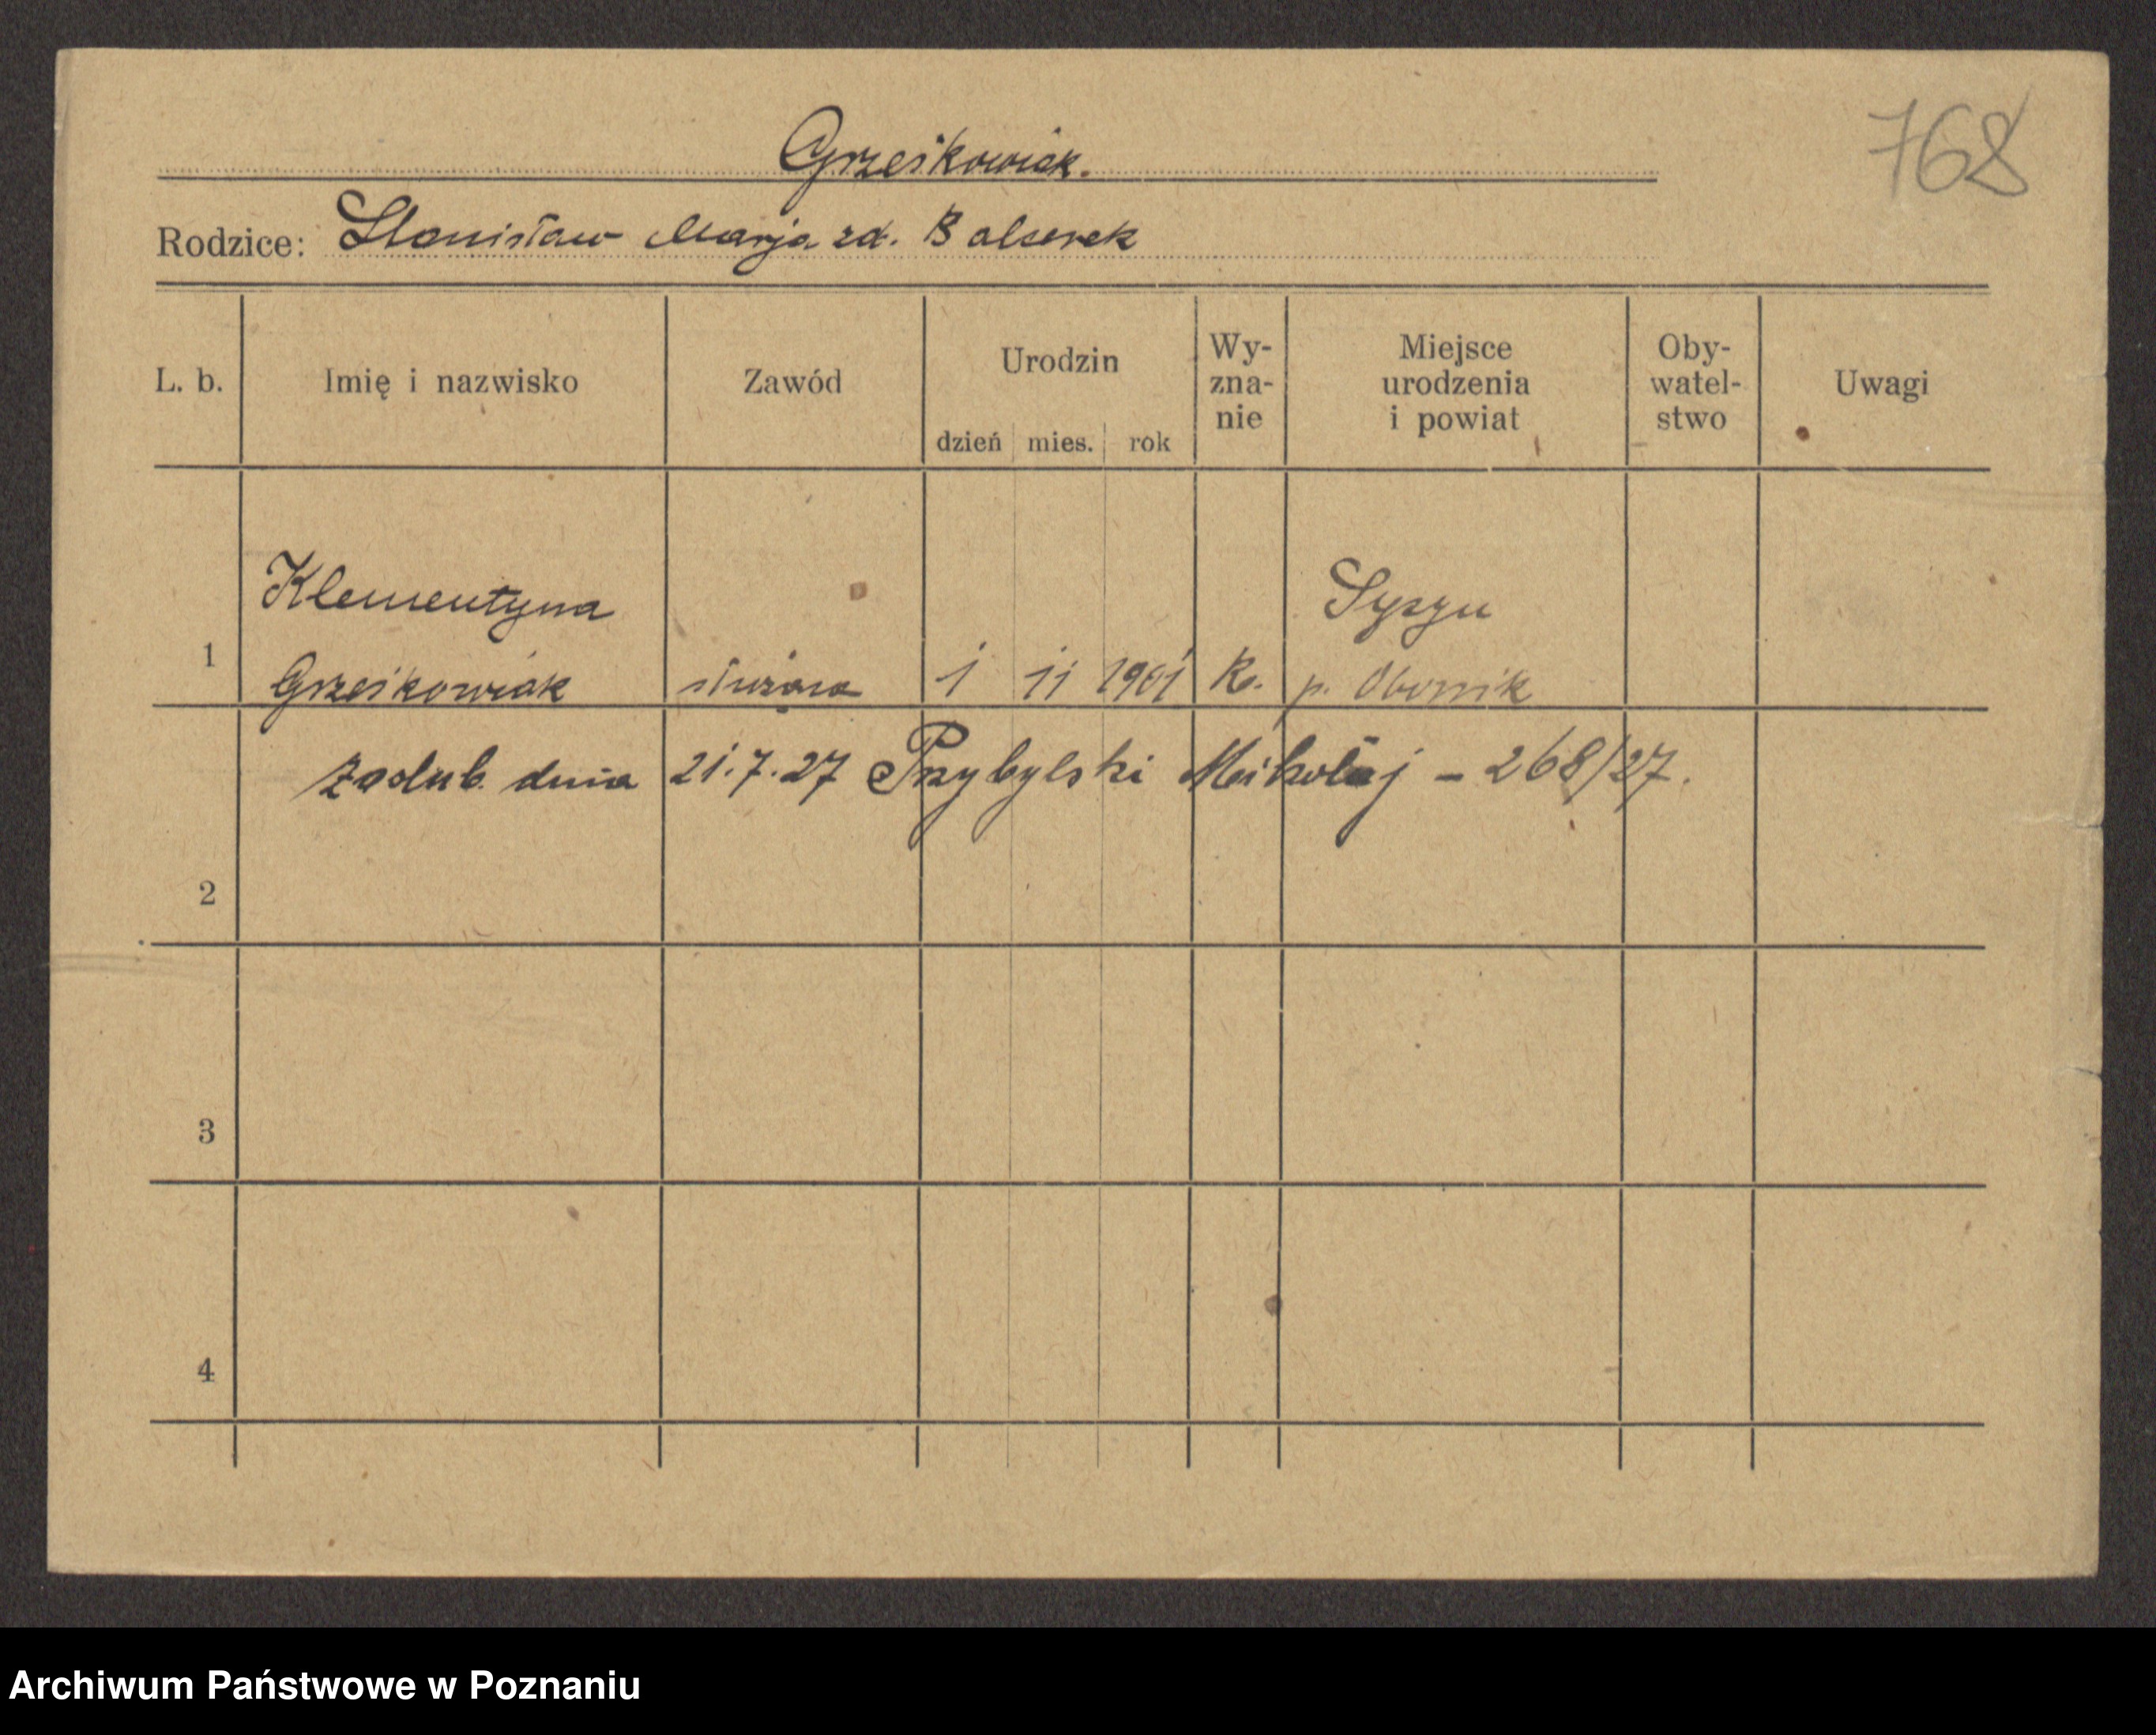 768
Grześkowiak.
Rodzice: Stanisław Marja zd. Balcerek
L. b. Imię i nazwisko Zawód Urodzin dzień mies. rok Wy-zna-nie Miejsce urodzenia i powiat Oby-watel-stwo Uwagi
Klementyna
1 Grześkowiak służąca 1 11 1901 K. p. Obornik
zaślub. dnia 21.7.27 Przybylski Mikołaj – 268/27.
2
3
4
Archiwum Państwowe w Poznaniu